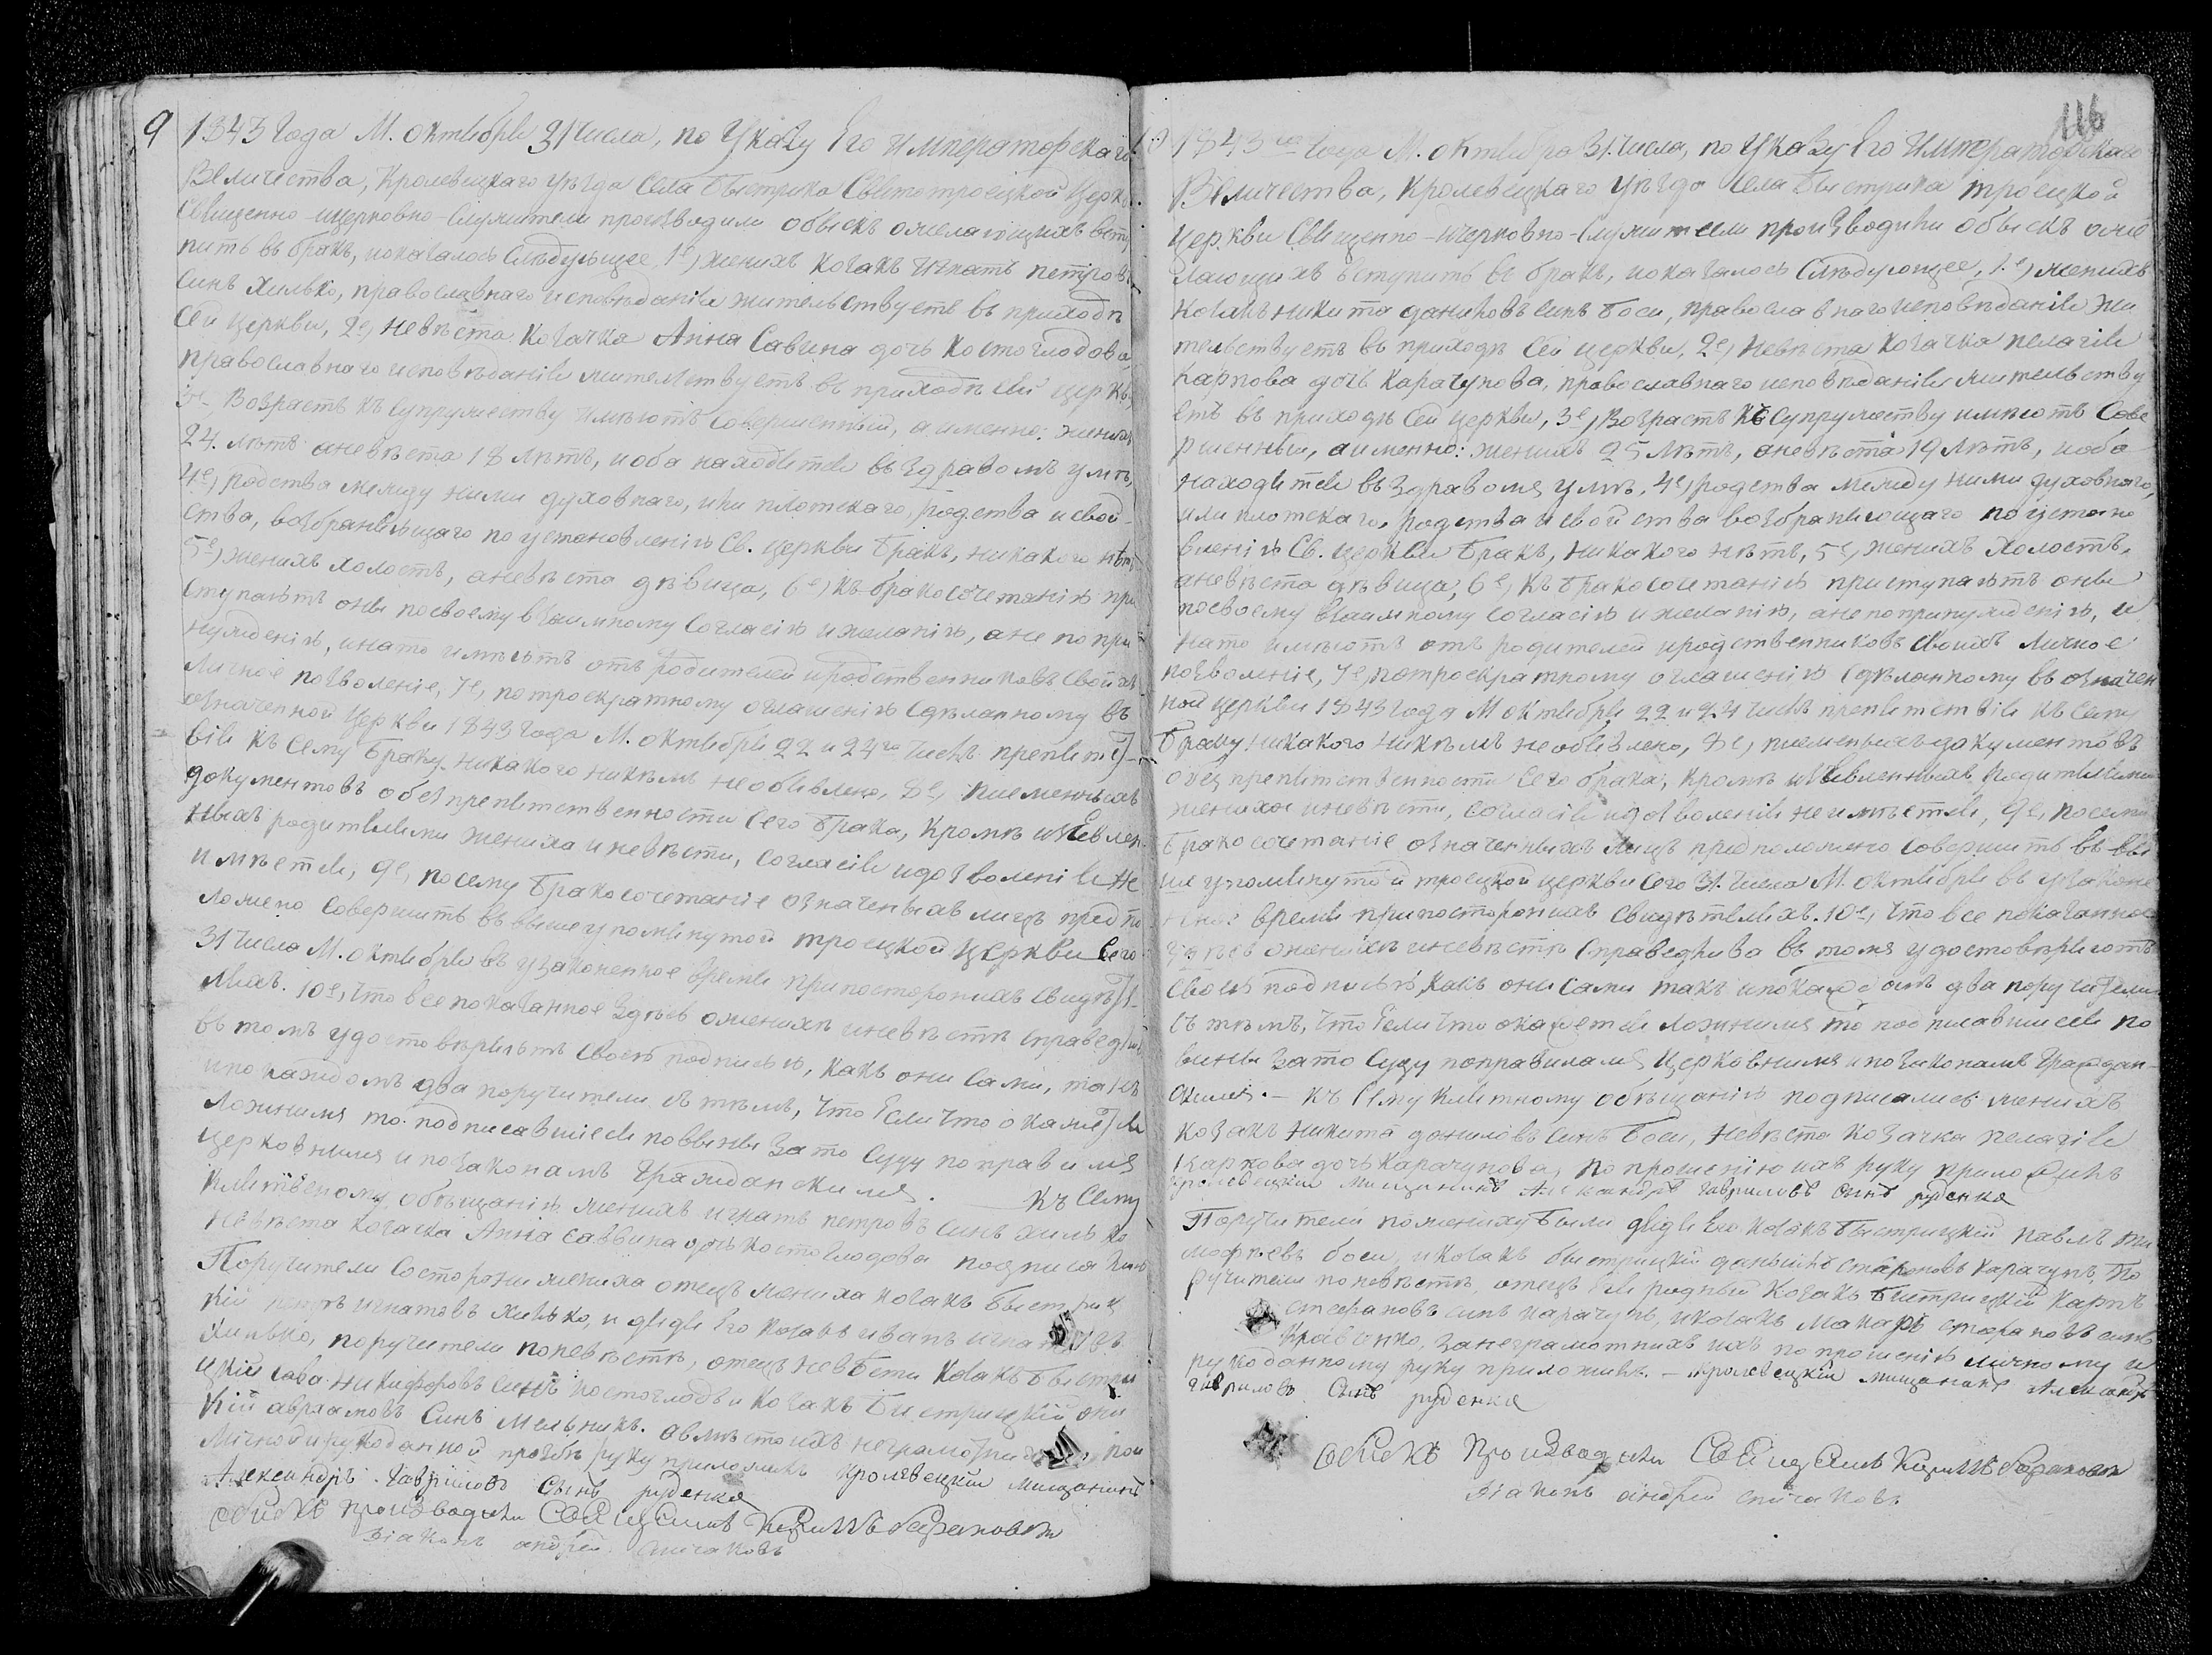 9
1843 Года М. октября 31 числа, по Указу Его Императорскаго
Величества, Кролевецкаго уезда села быстрика Святотроецкой Церкви
Священно-церковно-служители произъводили обыскъ ожелающихъ всту
пить въ бракъ, ноказалось следующее, 1е, женихъ козакъ Игнатъ петровъ
синъ Хилько, православнаго исповѣданія жительствуетъ въ приходѣ
Сей церкви, 2е, невѣста козачка Анна Савина дочь Костоглодова,
православнаго исповѣданія жителствуетъ въ приходѣ сей церкви,
3е, Возрастъ къ супружеству имѣютъ совершенный, а именно: женихъ
24. лѣтъ аневѣста 18 лѣтъ, иоба находятся въ здравомъ умѣ,
4е, родства между ними духовнаго, или плотскаго, родства и свой-
ства, возбраняющаго по установленію Св. Церкви бракъ, никакого нѣтъ
5е, женихъ холостъ, аневѣста дѣвица, 6е, къ бракосочетанію при
ступаютъ оны посвоему взаимному согласію и желанію, ане по при
нужденію, инато имѣютъ отъ родителей иродственниковъ своихъ
личное позволеніе, 7е, потроекратному оглашенію сдѣланному въ
означенной Церкви 1843 года М. октября 22 и 24го числъ препятст-
вія къ сему браку никакого никѣмъ необявлено, 8е, писменныхъ
документовъ обезпрепятственности сего брака, кромѣ изявлен
ныхъ родителями жениха и невѣсти, согласія идозволенія не
имѣется, 9е, посему бракосочетаніе означеныхъ лицъ предпо
ложено совершить въ вышеупомянутой троецкой Церкви сего
31 числа М. октября въ узаконенное время припосторонихъ свидѣт-
ляхъ. 10е, что все показанное здѣсь оженихѣ иневѣстѣ справедливо
въ томъ удостовѣряютъ своею подписью, какъ они сами, такъ
ипокаждомъ два поручители съ тѣмъ, что Если что окажется
ложнимъ то подписавшіеся повинны зато суду поправиламъ
церковнимъ и позаконамъ Гражданскимъ. Къ сему
клятвеному обѣщанію женихъ игнатъ петровъ синъ хилько
невѣста козачка Анна саввина дочь костоглодова подписались
Поручители состорони жениха отецъ жениха козакъ быстриц
кій петръ игнатовъ хилько, и дядя Его козакъ иванъ игнатовъ
хилько, поручители поневѣстѣ, отецъ невѣсти козакъ быстри
цкій сава никифоровъ синъ костоглодъ и козакъ Быстрицкій
авраамовъ синъ мельникъ. авмѣстоихъ неграмотних по
личнойирукоданной прозбѣ руку приложилъ кролевецкій мищанинъ
Александръ Гавриловъ сынъ руденка
обискъ производили Священикъ
діаконъ андрей спичаковъ
116
10
1843го Года М. октября 31. числа, по Указу Его Императорскаго
Величества, Кролевецкаго уѣзда села быстрика троецкой
Церкви Священно-церковно-служители произъводили обыскъ оже
лающихъ вступить въ бракъ, ноказалось следующее, 1е, женихъ
козакъ никита даниловъ синъ боси, православнаго исповѣданія жи
тельствуетъ въ приходѣ сей церкви, 2е, невѣста козачка пелагія
карпова дочь карачунова, православнаго исповѣданія жительству
етъ въ приходѣ сей церкви, 3е, Возрастъ къ супружеству имѣютъ сове
ршенныи, аименно: женихъ 25 лѣтъ, аневѣста 19 лѣтъ, иоба
находятся въ здравомъ умѣ, 4е, родства между ними духовнаго,
или плотскаго, родства и свойства возбраняющаго по устано
вленію Св. Церкви бракъ, никакого нѣтъ, 5е, женихъ холостъ,
аневѣста дѣвица, 6е, къ бракосочетанію приступаютъ оны
посвоему взаимному согласію ижеланію, анепопринужденію, и
нато имѣютъ отъ родителей иродственниковъ своихъ личное
позволеніе, 7е, потроекратному оглашенію сдѣланному въ означен
ной церкви 1843 года М октября 22 и 24 числъ препятствія къ сему
браку никакого никѣмъ необявлено, 8е, писменныхъ документовъ
обез препятственности сего брака, кромѣ изявленныхъ родителями
жениха иневѣсти, согласія идозволенія неимѣется, 9е, посему
бракосочетаніе означенныхъ лицъ предположено совершить въ вы
шеупомянутой троецкой церкви сего 31. числа М. октября въ узаконе
нное время припосторонихъ свидѣтеляхъ. 10е, что все показанное
здѣсь оженихѣ иневѣстѣ справедливо въ томъ удостовѣряютъ
своею подписью, какъ они сами такъ ипокаждомъ два поручители
съ тѣмъ, что Если что окажется ложнимъ то подписавшіеся по
винны зато суду поправиламъ церковнимъ ипозаконамъ Граждан-
скимъ. - къ сему клятному обѣщанію подписались женихъ
козакъ никита даниловъ синъ боси, невѣста козачка пелагія
карпова дочь карачунова, по прошенію ихъ руку приложилъ
кролевецкій мищанинъ Александръ гавриловъ сынъ руденка
Поручители пожениху были дядя Его козакъ быстрицкій павлъ ти
мофѣевъ боси, икозакъ быстрицкій даніилъ стефановъ карачунъ, По
ручители поневѣстѣ, отецъ Ея родный козакъ быстрицкій карпъ
стефановъ синъ карачунъ, икозакъ макаръ стефановъ синъ
кравченко, занеграмотнихъ ихъ по прошенію личному и
рукоданному руку приложилъ. - кролевецкій мищанинъ Александръ
гавриловъ сынъ руденка
обискъ Производили Священикъ
діаконъ андрей спичаковъ